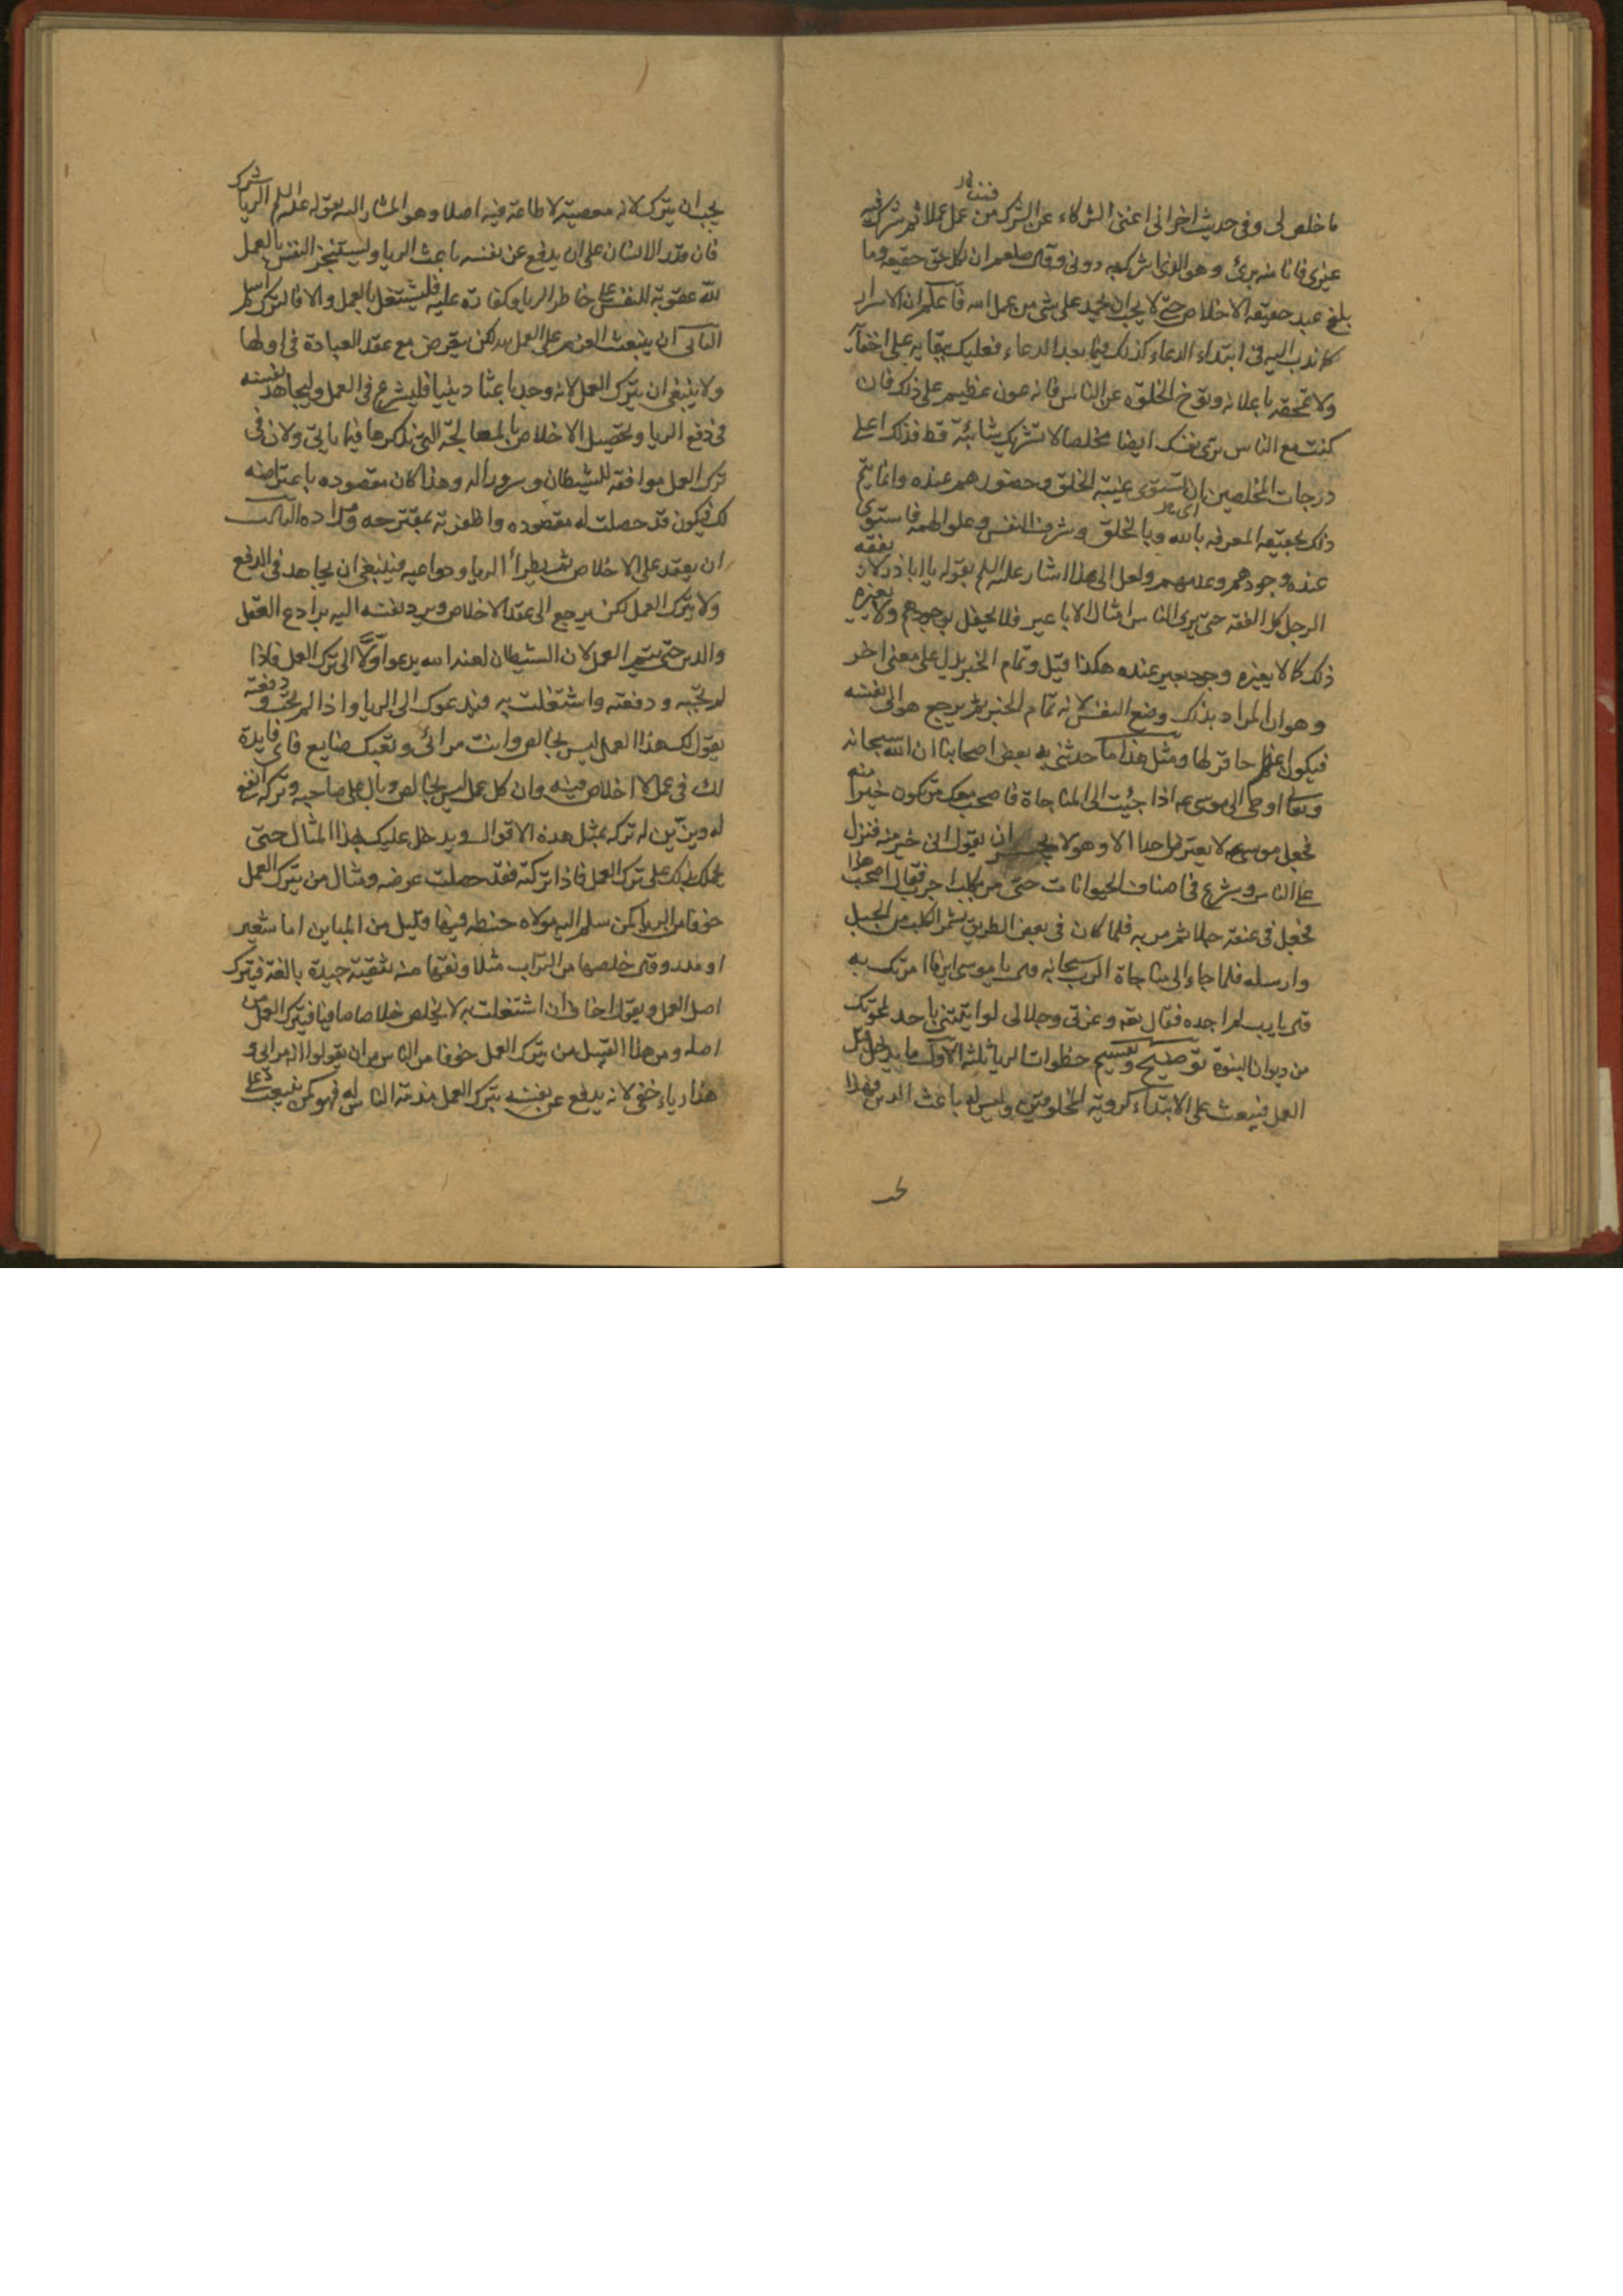 ما خلص لى وفى حديث اخر انى اغنى الشركاء عن الشرك فمن عمل عملا ثم شرك فيه
غيرى فانا منه برئ وهو الذى اشرك به دونى وقال صلعم ان لكل حق حقيقه وما
بلغ عبد حقيقه الاخلاص حتى لا يحب ان يحمد على شئ من عمل الله فاعلم ان الاسرار
كما ندب اليه فى ابتداء الدعاء كذلك فيما بعد الدعاء فعليك ببقايه على اخفائه
ولا تمحقه باعلانه وتوخ الخلوه عن الناس فانه عون عظيم على ذلك فان
كنت مع الناس ترى نفسك ايضا مخلصا لا تشريك شائبة قط فذلك اعلى
درجات المخلصين ان تستوى غيبة الخلق وحضورهم عنده وانما يتم
ذلك بحقيقه المعرفه بالله وبالخلق وشرف النفس وعلو الهمه فاستوى
عنده وجودهم وعدمهم ولعل الى هذا اشار عليه السلم بقوله يا اباذر لا يفقه
الرجل كل الفقه حتى يرى الناس امثال الاباعير فلا يحفل بوجودهم ولا يغيره
ذلك كما لا يغيره وجود بعير عنده هكذا قيل وتمام الخبر يدل على معنى اخر
وهو ان المراد بذلك وضع النفس لانه تمام الخبر ثم يرجع هو الى نفسه
فيكون اعظم حاقر لها ومثل هذا ما حدثنى به بعض اصحابنا ان الله سبحانه
وتعالى اوحى الى موسى ع اذا جئت الى المناجاة فاصحب معك من تكون خيرا منه
فجعل موسى لا يعترض احدا الا وهو لا يجسر ان يقول انى خير منه فنزل
عن الناس وشرع فى اصناف الحيوانات حتى مر بكلب اجرب فقال اصحب هذا
فجعل فى عنقه حبلا ثم مر به فلما كان فى بعض الطريق شمر الكلب من الحبل
وارسله فلما جاء الى مناجاة الرب سبحانه قال يا موسى اين ما امرتك به
قال يا رب لم اجده فقال تعه وعزتى وجلالى لو اتيتنى باحد لمحوتك
من ديوان النبوة توضيح وتقسيم خطوات الريا ثلثة الاول ما يدخل قبل
العمل فيبعث على الابتداء كرؤية المخلوقين وليس له باعث الدين فهذا
يجب ان يترك لانه معصية لا طاعة فيه اصلا وهو المشار اليه بقوله عليه السلم الريا شرك
فان قدر الانسان على ان يدفع عن نفسه باعث الريا وليستنجز النفس بالعمل
لله عقوبة للنفس على خاطر الريا وكفارة عليه فليشتغل بالعمل والا فالترك اسلم
الثانى ان ينبعث العزم على العمل لله لكن يعترض مع عقد العبادة فى اولها
ولا ينبغى ان يترك العمل لانه وجد باعثا دينيا فليشرع فى العمل وليجاهد نفسه
فى دفع الريا وتحصيل الاخلاص بالمعالجة التى نذكرها فيما ياتى ولان فى
ترك العمل موافقه للشيطان وسرورا له وهذا كان مقصوده باعتراضه
لك فيكون قد حصلت له مقصوده واظفرته بمقترحه ومراده الثالث
ان يعقد على الاخلاص ثم يطرأ الريا ودواعيه فينبغى ان يجاهد فى الدفع
ولا يترك العمل لكن يرجع الى عقد الاخلاص ويرد نفسه اليه برادع العقل
والدين حتى يتم العمل لان الشيطان لعنه الله يدعو اولا الى ترك العمل فاذا
لم تجبه ودفعته واشتغلت به فيدعوك الى الريا واذا لم تجب ودفعته
يقول لك هذا العمل ليس بخالص وانت مرائى وتعبك ضايع فاى فايدة
لك فى عمل لا اخلاص فيه وان كل عمل ليس بخالص وبال على صاحبه وتركه انفع
له ويزين له تركه بمثل هذه الاقوال ويدخل عليك بهذا المثال حتى
يحملك بذلك على ترك العمل فاذا تركته فقد حصلت غرضه ومثال من يترك العمل
خوفا من الريا كمن سلم اليه مولاه حنطه فيها قليل من المباين اما شعير
او مدر وقال خلصها من التراب مثلا ونقها منه تنقية جيدة بالغة فيترك
اصل العمل ويقول اخاف ان اشتغلت به لا يخلص خلاصا صافيا فيترك العمل من
اصله ومن هذا القبيل من يترك العمل خوفا من الناس من ان يقولوا انه مرائى و
هذا رياء خفى لانه يدفع عن نفسه بترك العمل مذمة الناس له فهو كمن